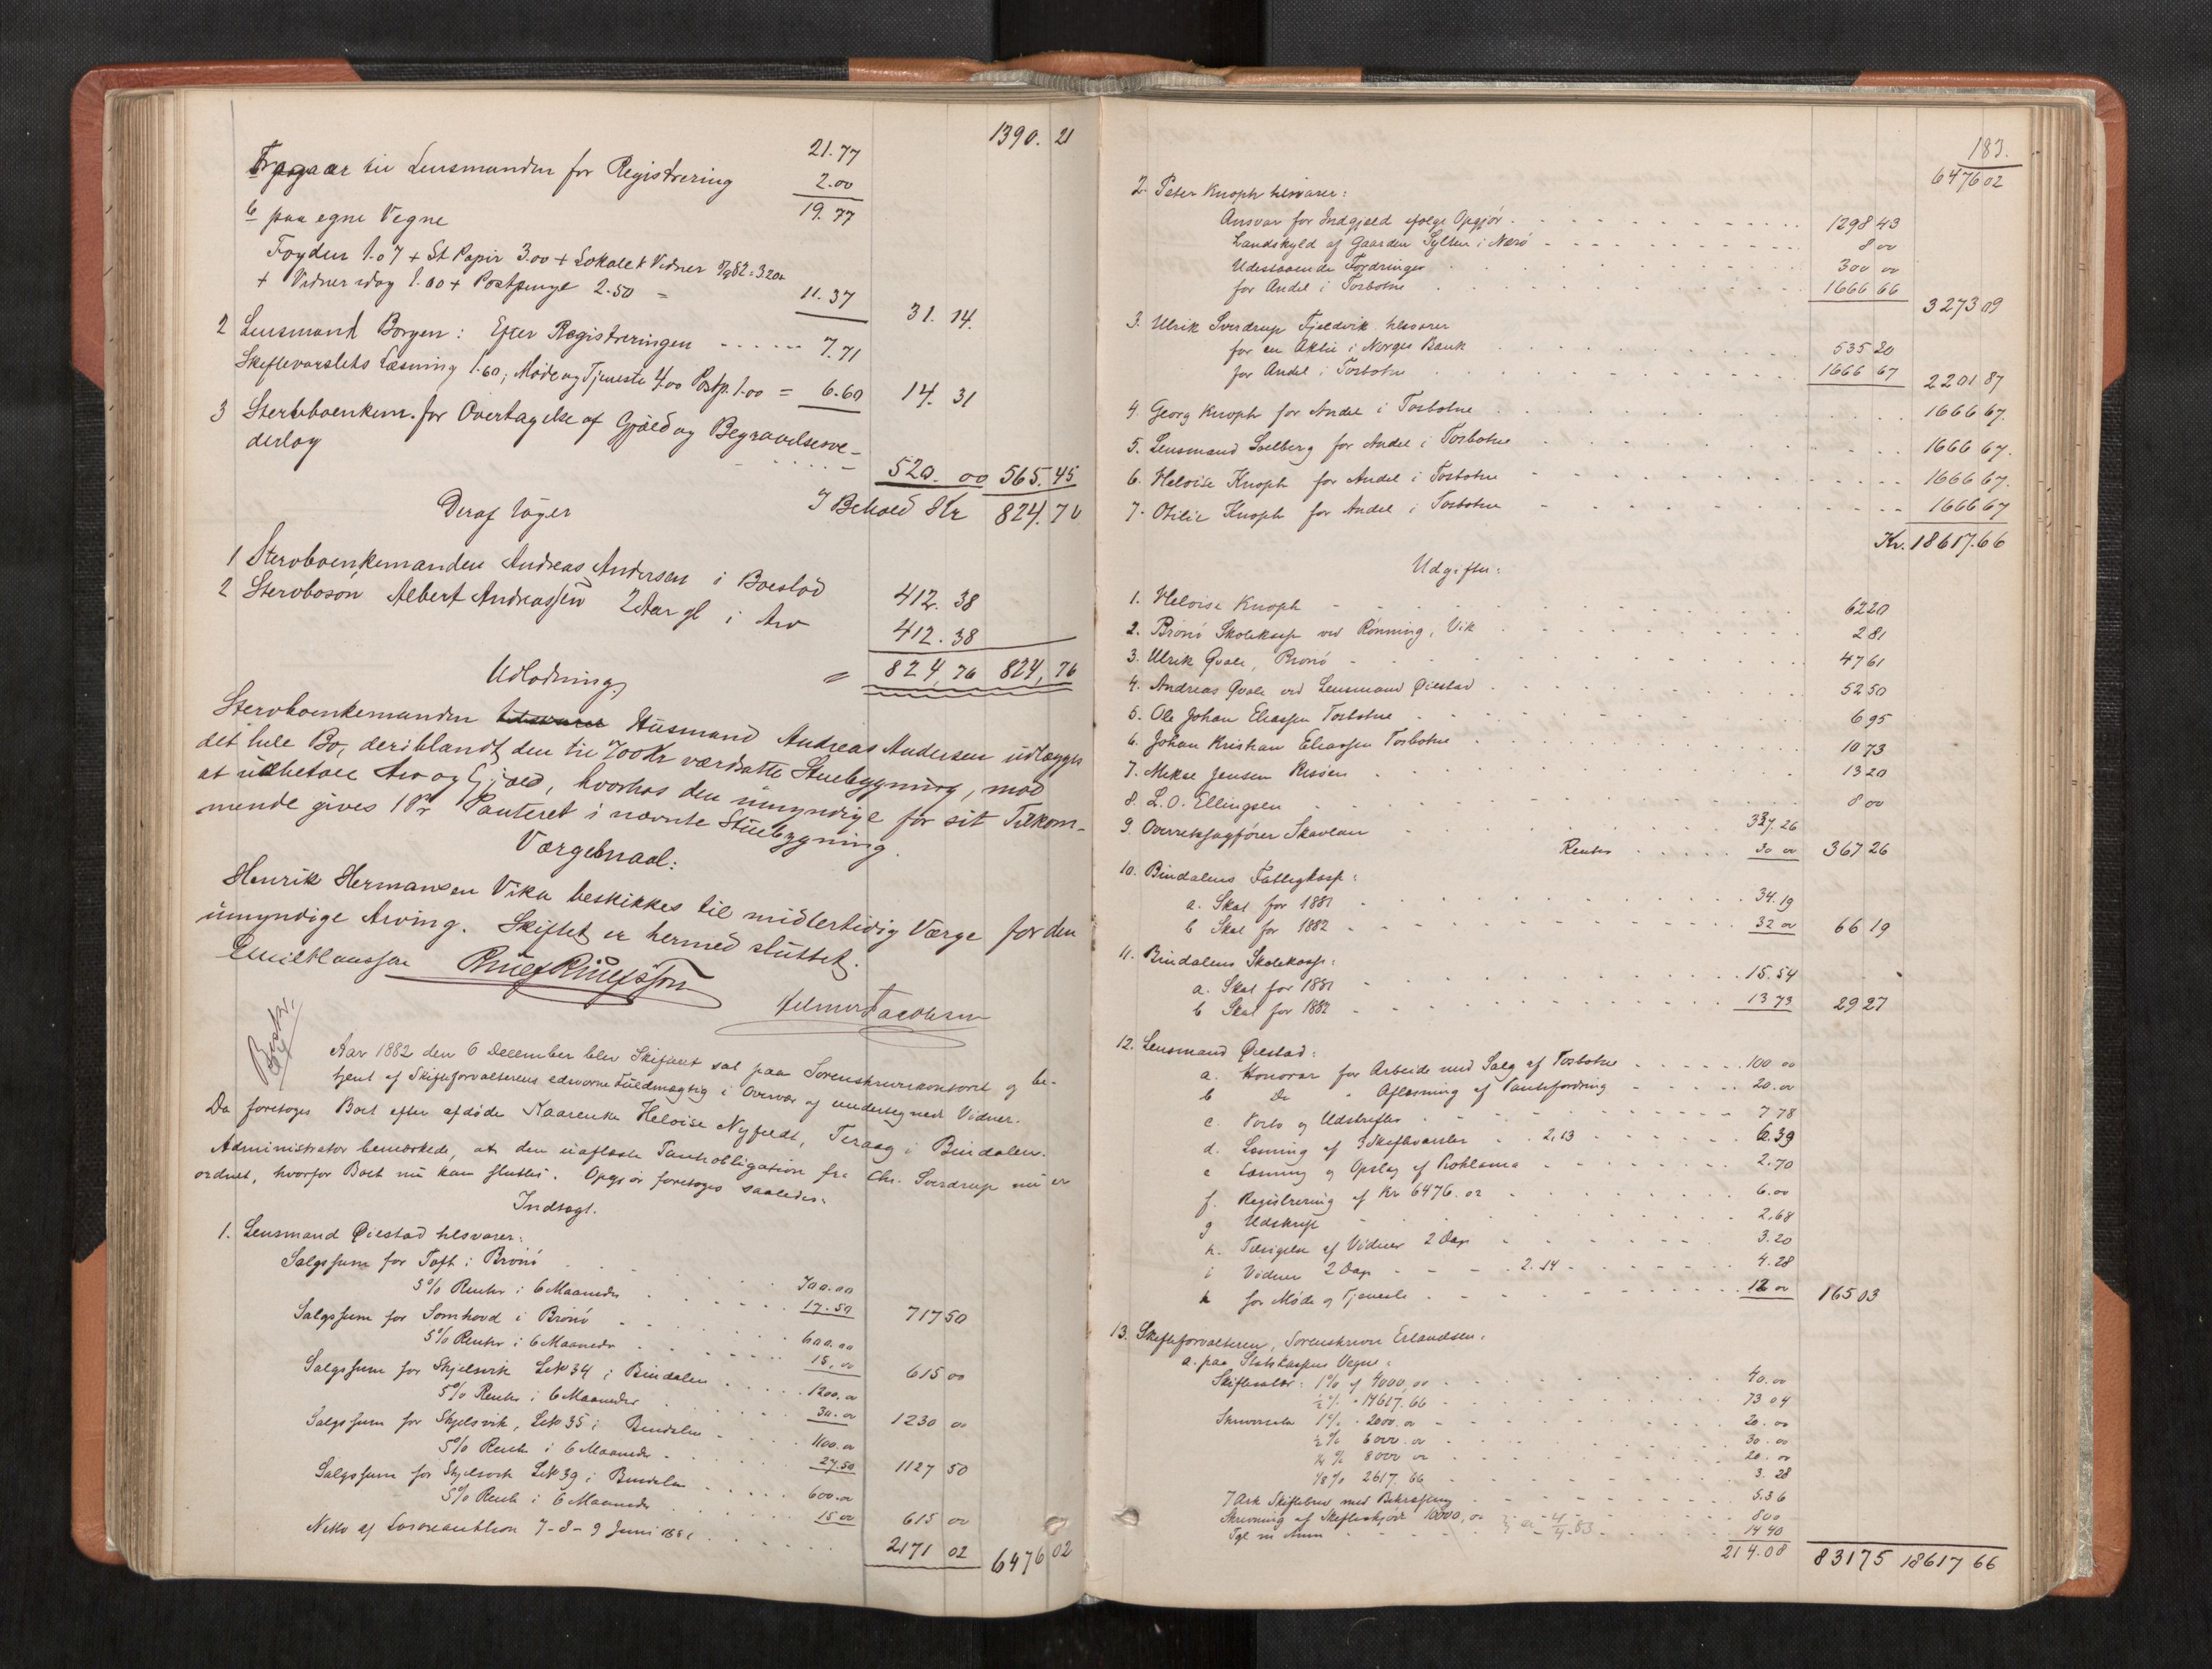 1390. 21
21.77
Fragaar til Lensmanden for Registrering 2.00
b paa egne Vegne 19.77
Fogden 1.07 + St Papir 3.00 + Lokale & Vidner 3.20
+ Vidner idag 1.00 + Postpenge 2.50 = 11.37 31.14.
2 Lensmand Borgen: Efter Registreringen ...... 7.71
Skiftevarslets Læsning 1.60, Møde og Tjeneste 4.00 Postp. 1.00 = 6.60 14.31
3 Sterbboenkem. for Overtagelse af Gjæld og Begravelsesve-
derlag ..... 520.00 565.45
I Behold Kr 824.76
Deraf tager
1 Stervboenkemanden Andreas Andersen i Boeslod 412.38
2 Stervboson Albert Andreassen 2 Aar gl i Arv 412.38
= 824,76 824,76
Udlodning
Stervboenkemanden Husmand Andreas Andersen udlægges
det hele Bo, deriblandt den til 700 Kr værdsatte Stuebygning, mod
at udbetale Arv og Gjæld, hvorhos den umyndige for sit Tilkom-
mende gives 1ste Panteret i nævnte Stuebygning.
Værgemaal:
Henrik Hermansen Vika beskikkes til midlertidig Værge for den
umyndige Arving. Skiftet er hermed sluttet.
Emil Claussen
Helmer Jacobsen
Aar 1882 den 6 December blev Skifteret sat paa Sorenskriverkontoret og be-
tjent af Skifteforvalterens edsvorne Fuldmægtig i Overvær af undertegnede Vidner.
Da foretoges Boet efter afdøde Kaarenke Heloise Nyfeldt, Teraag i Bindalen.
Administrator bemærkede, at den uafløste Pantobligation fra Chr. Sverdrup nu er
ordnet, hvorfor Boet nu kan sluttes. Opgjør foretoges saaledes:
Indtægt.
1. Lensmand Øiestad tilsvarer:
Salgssum for Toft i Brønø 700.00
5% Renter i 6 Maaneder 17.50 717 50
Salgssum for Somhovd i Brønø 600.00
5% Renter i 6 Maaneder 15,00 615 00
Salgssum for Skjelsvik Lno 34 i Bindalen 1200.00
5% Renter i 6 Maaneder 30.00 1230 00
Salgssum for Skjelsvik, Lno 35 i Bindalen 1100.00
5% Renter i 6 Maaneder 27.50 1127 50
Salgssum for Skjelsvik Lno 39 i Bindalen 600.00
5% Rente i 6 Maaneder 15 00 615 00
Netto af Løsøreauktion 7-8-9 Juni 1881 2171 02 6476 02
183.
6476 02
2. Peter Knoph tilsvarer:
Ansvar for Indgjæld ifølge Opgjør 1298 43
Landskyld af Gaarden Sylten i Nærø 8 00
Udestaaende Fordringer 300 00
for Andel i Tosbotne 1666 66 3273 09
3. Ulrik Sverdrup Fjeldvik tilsvarer
for en Aktie i Norges Bank 535 20
for Andel i Tosbotne 1666 67 2201 87
4. Georg Knoph for Andel i Tosbotne 1666 67.
5. Lensmand Solberg for Andel i Tosbotne 1666 67.
6. Heloise Knoph for Andel i Tosbotne 1666 67.
7. Otilie Knoph for Andel i Tosbotne 1666 67
Kr. 18617.66
Udgifter:
1. Heloise Knoph 62 20
2. Brønø Skolekasse ved Rønning, Vik 2 81
3. Ulrik Qvale, Brønø 47 61
4. Andreas Qvale ved Lensmand Øiestad 52 50
5. Ole Johan Eliassen Tosbotne 6 95
6. Johan Kristian Eliassen Tosbotne 10 73
7. Mikal Jensen Risøen 13 20
8. L. O. Ellingsen 8 00
9. Overretssagfører Skavlan 337.26
Renter 30 00 367 26
10. Bindalens Fattigkasse:
a. Skat for 1881 34.19
b Skat for 1882 32 00 66 19
11. Bindalens Skolekasse:
a. Skat for 1881 15.54
b Skat for 1882 13 73 29 27
12. Lensmand Øiestad:
a. Honorar for Arbeide med Salg af Tosbotne 100 00
b Do " Afløsning af Pantefordring 20.00
c. Porto og Udskrifter 7 78
d. Læsning af 3 Skiftevarsler 2,13 6.39
e Læsning og Opslag af Proklama 2.70
f. Registrering af Kr 6476.02 6.00
g Udskrift 2.68
h. Tilsigelse af Vidner 2 Dage 3.20
i Vidner 2 Dage 2.14 4.28
k for Møde og Tjeneste 12 00 165 03
13. Skifteforvalteren, Sorenskriver Erlandsen:
a. paa Statskassens Vegne:
Skiftesalær: 1% af 4000,00 40.00
½% - 14617.66 73 04
Skriversalær 1% - 2000.00 20.00
½% 6000.00 30.00
¼% 8000 00 20.00
1/8% 2617.66 3.28
7 Ark Skiftebrev med Bekræftelse 5.36
Skrivning af Skifteskjøde 10000,00 8 00
Tgl m Anm 14 40
214.08 831 75 18617 66